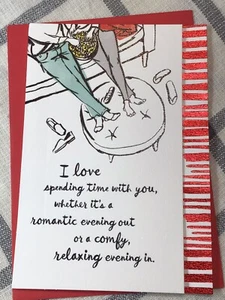 I love
spending time with you,
whether it's a
romantic evening out
or a comfy,
relaxing evening in.